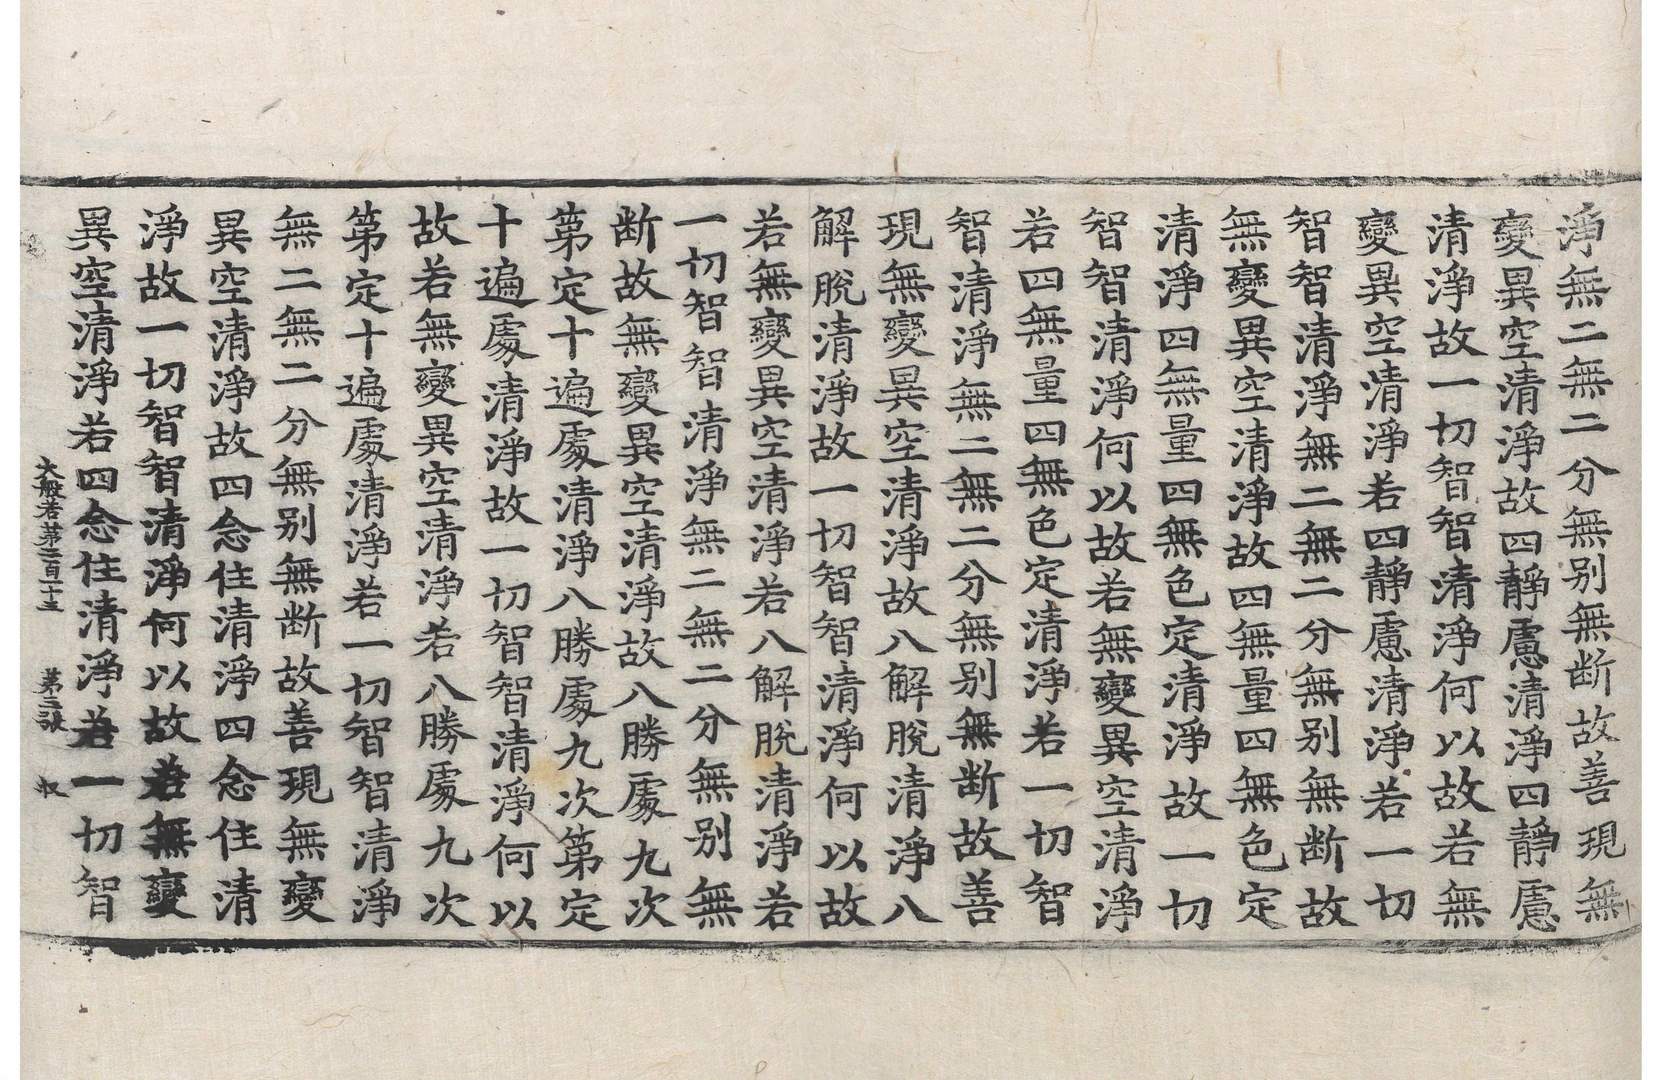 淨無二無二分無别無断故善現無
變異空清淨故四靜慮清淨四靜慮
清淨故一切智智清淨何以故若無
變異空清淨若四靜慮清淨若一切
智智清淨無二無二分無别無断故
無變異空清淨故四無量四無色定
清淨四無量四無色定清淨故一切
智智清淨何以故若無變異空清淨
若四無量四無色定清淨若一切智
智清淨無二無二分無别無断故善
現無變異空清淨故八解脫清淨八
解脫清淨故一切智智清淨何以故
若無變異空清淨若八解脫清淨若
一切智智清淨無二無二分無别無
断故無變異空清淨故八勝處九次
第定十遍處清淨八勝處九次第定
十遍處清淨故一切智智清淨何以
故若無變異空清淨若八勝處九次
第定十遍處清淨若一切智智清淨
無二無二分無别無断故善現無變
異空清淨故四念住清淨四念住清
淨故一切智智清淨何以故若無變
異空清淨若四念住清淨若一切智
大般若第二百十三 第三張